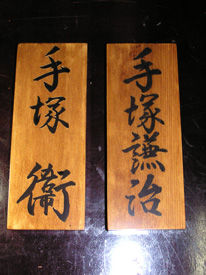 手塚謙治
手塚衛